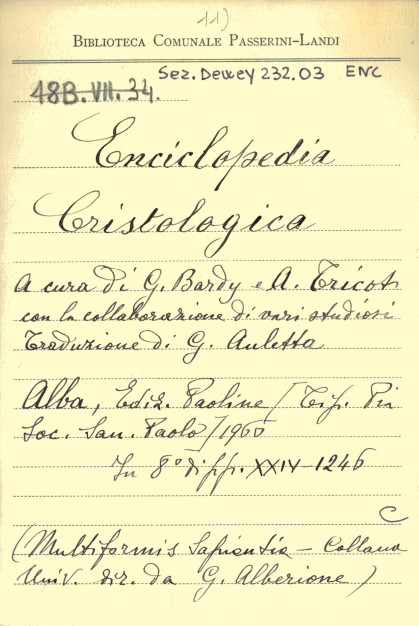 11)
BIBLIOTECA COMUNALE PASSERINI-LANDI
Sez. Dewey 232.03 ENC
18B.VII.34.
Enciclopedia
Cristologica
A cura di G. Bardy e A. Tricot
con la collaborazione di vari studiosi
Traduzione di G. Auletta
Alba, Ediz. Paoline (Tip. Pia
Soc. San. Paolo) 1960
In 8° di pp. XXIV-1246
C
(Multiformis Sapientia - Collana
Univ. dir. da G. Alberione)